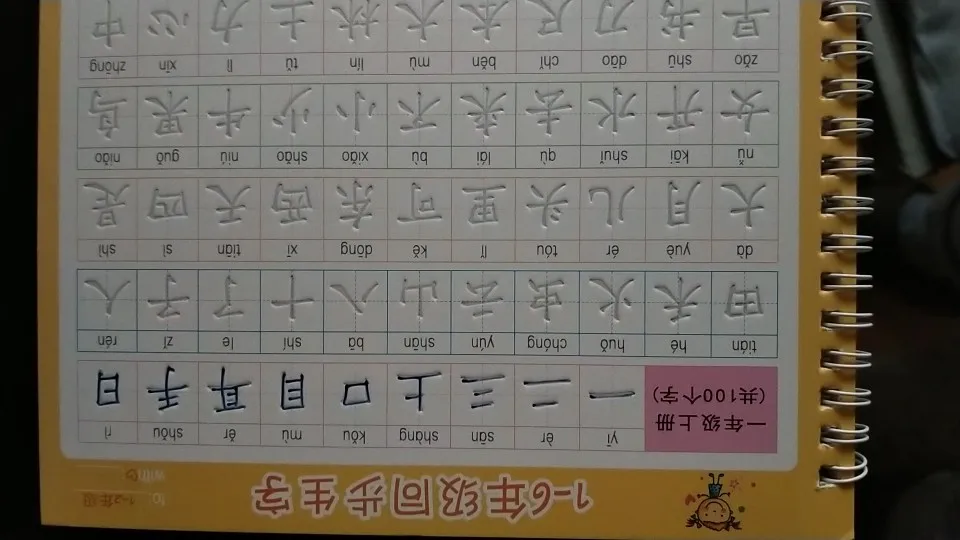 1-6年级同步生字
to 1-2年级
with
yī èr sān shàng kǒu mù ěr shǒu rì
一年级上册
(共100个字)
一 二 三 上 口 目 耳 手 日
tián hé huǒ chóng yún shān bā shí le zǐ rén
田 禾 火 虫 云 山 八 十 了 子 人
dà yuè ér tóu lǐ kě dōng xī tiān sì shì
大 月 儿 头 里 可 东 西 天 四 是
nǚ kāi shuǐ qù lái bù xiǎo shǎo niú guǒ niǎo
女 开 水 去 来 不 小 少 牛 果 鸟
zǎo shū dāo chǐ běn mù lín tǔ lì xīn zhōng
早 书 刀 尺 本 木 林 土 力 心 中